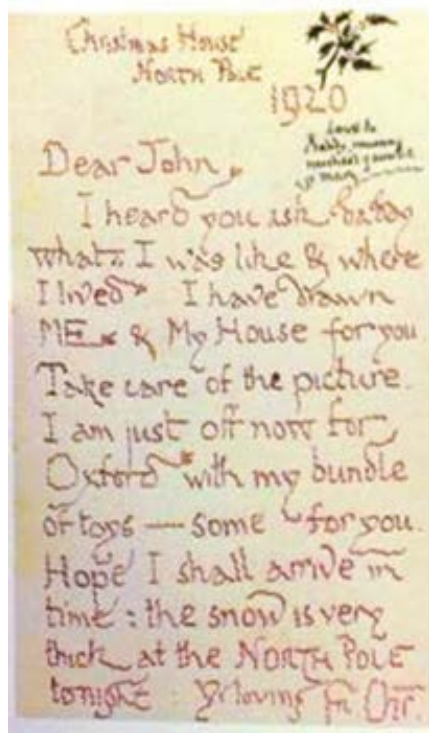 Christmas House
NORTH POLE
1920
Love to
daddy, mummy,
michael & auntie
mary
Dear John,
I heard you ask daddy
what I was like & where
I lived. I have drawn
ME & My House for you.
Take care of the picture.
I am just off now for
Oxford with my bundle
of toys — some for you.
Hope I shall arrive in
time : the snow is very
thick at the NORTH POLE
tonight : Yr loving Fr Chr.